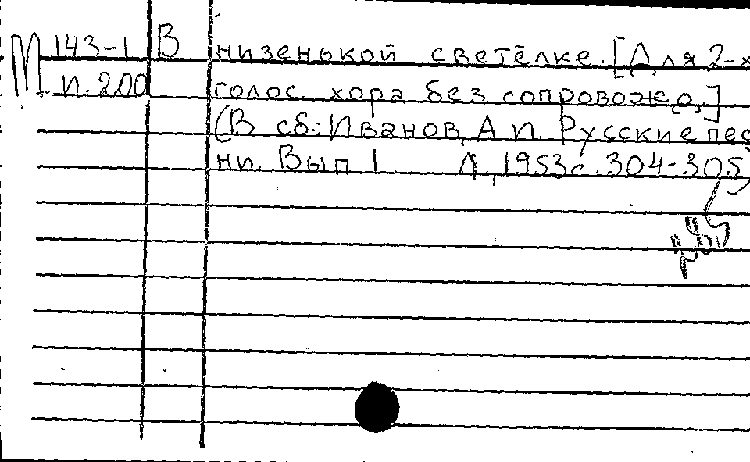 М 143-1 В низенькой светёлке. [Для 2-х
п. 200 голос. хора без сопровожд.]
(В сб.: Иванов, А. П. Русские пес
ни. Вып 1 Л, 1953 с. 304-305)